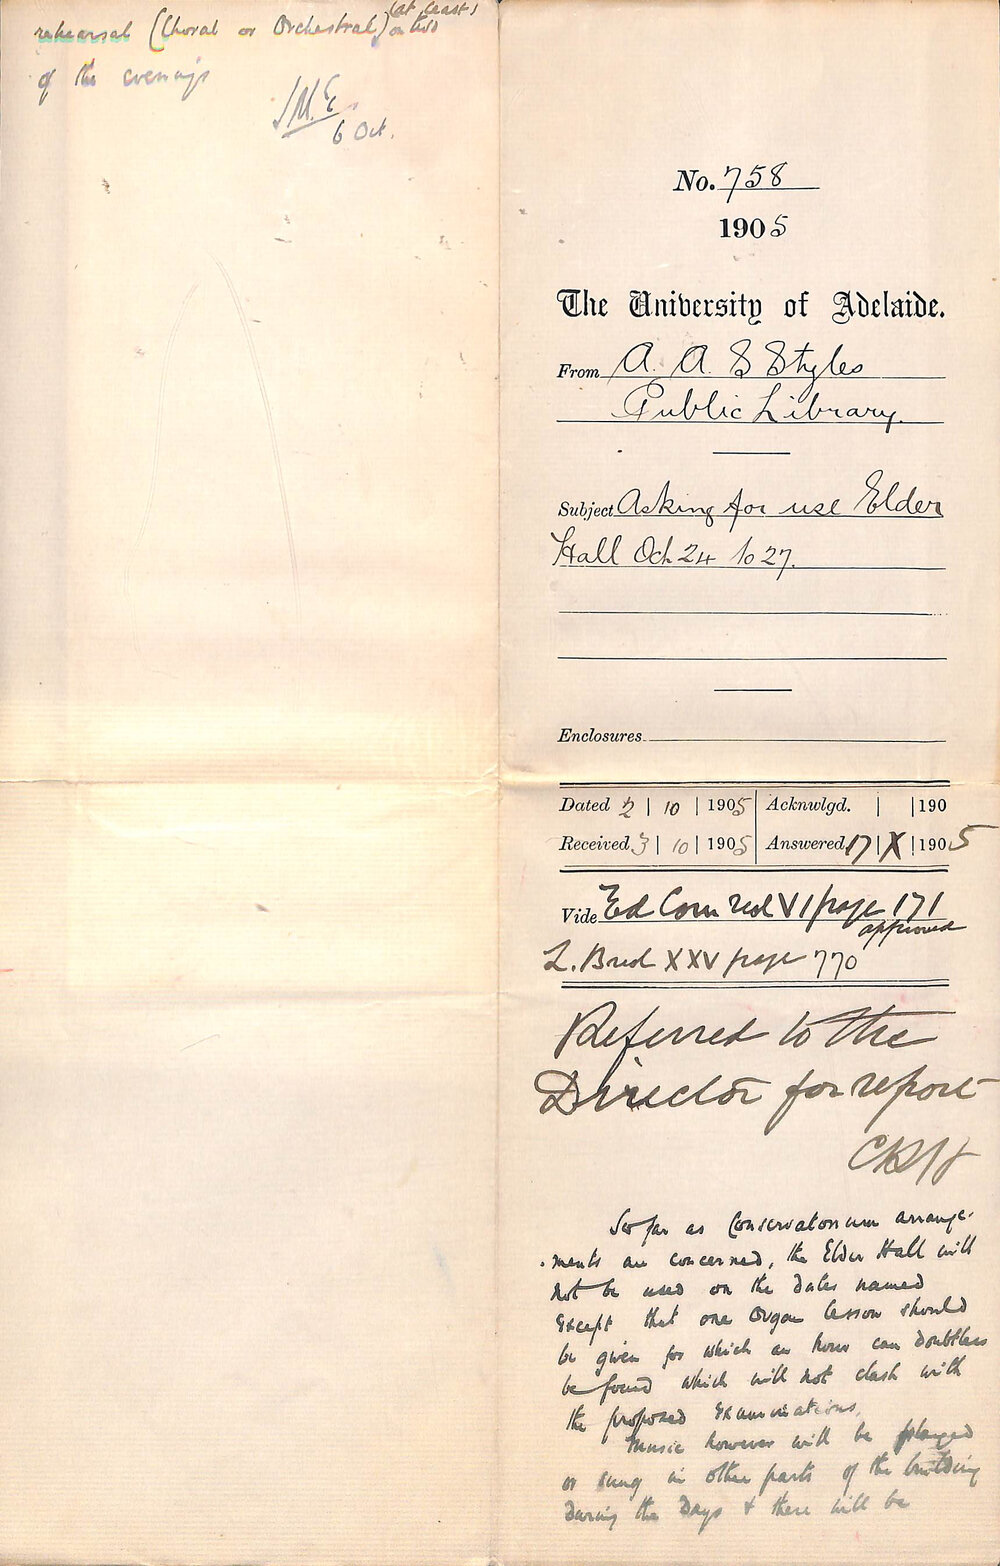 No. 758
1905
The University of Adelaide.
From A. A. S Styles
Public Library.
Subject Asking for use Elder
Hall Oct 24 to 27.
Enclosures
Dated 2 | 10 | 1905 | Acknwlgd. | | 190
Received 3 | 10 | 1905 | Answered 17 | X | 1905
Vide Ed Com red VI page 171
approved
L. Bred XXV page 770
Referred to the
Director for report
So far as Conservatorium arrange-
ments are concerned, the Elder Hall will
not be used on the dates named
except that one Organ lesson should
be given for which an hour can doubtless
be found which will not clash with
the proposed Examinations.
Music however will be played
or sung in other parts of the building
during the days & there will be
rehearsal (Choral or Orchestral) (at least) on two
of the evenings
6 Oct.